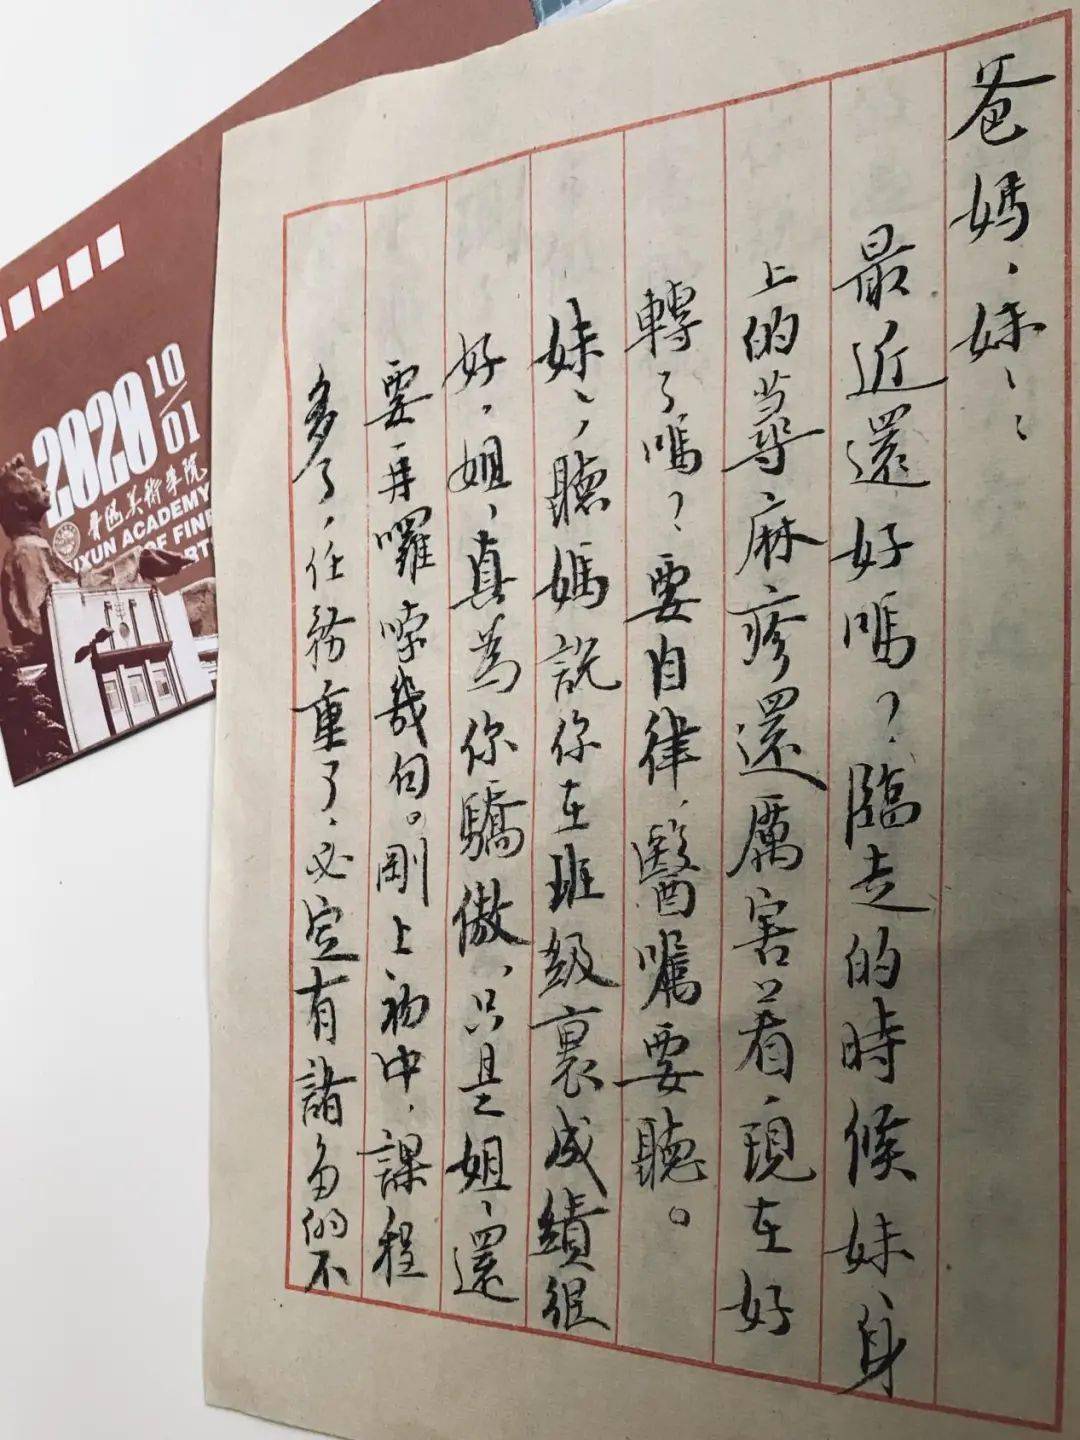 爸媽，妹〻：
最近還好嗎？臨走的時候妹〻身
上的蕁麻疹還厲害着，現在好
轉了嗎？要自律，醫囑要聽。
妹〻，聽媽説你在班級裏成績很
好，姐〻真為你驕傲，只是姐〻還
要再囉嗦幾句。剛上初中，課程
多了，任務重了，必定有諸多的不
2020 10/01
魯迅美術學院
UXUN ACADEMY
OF FINE
ART